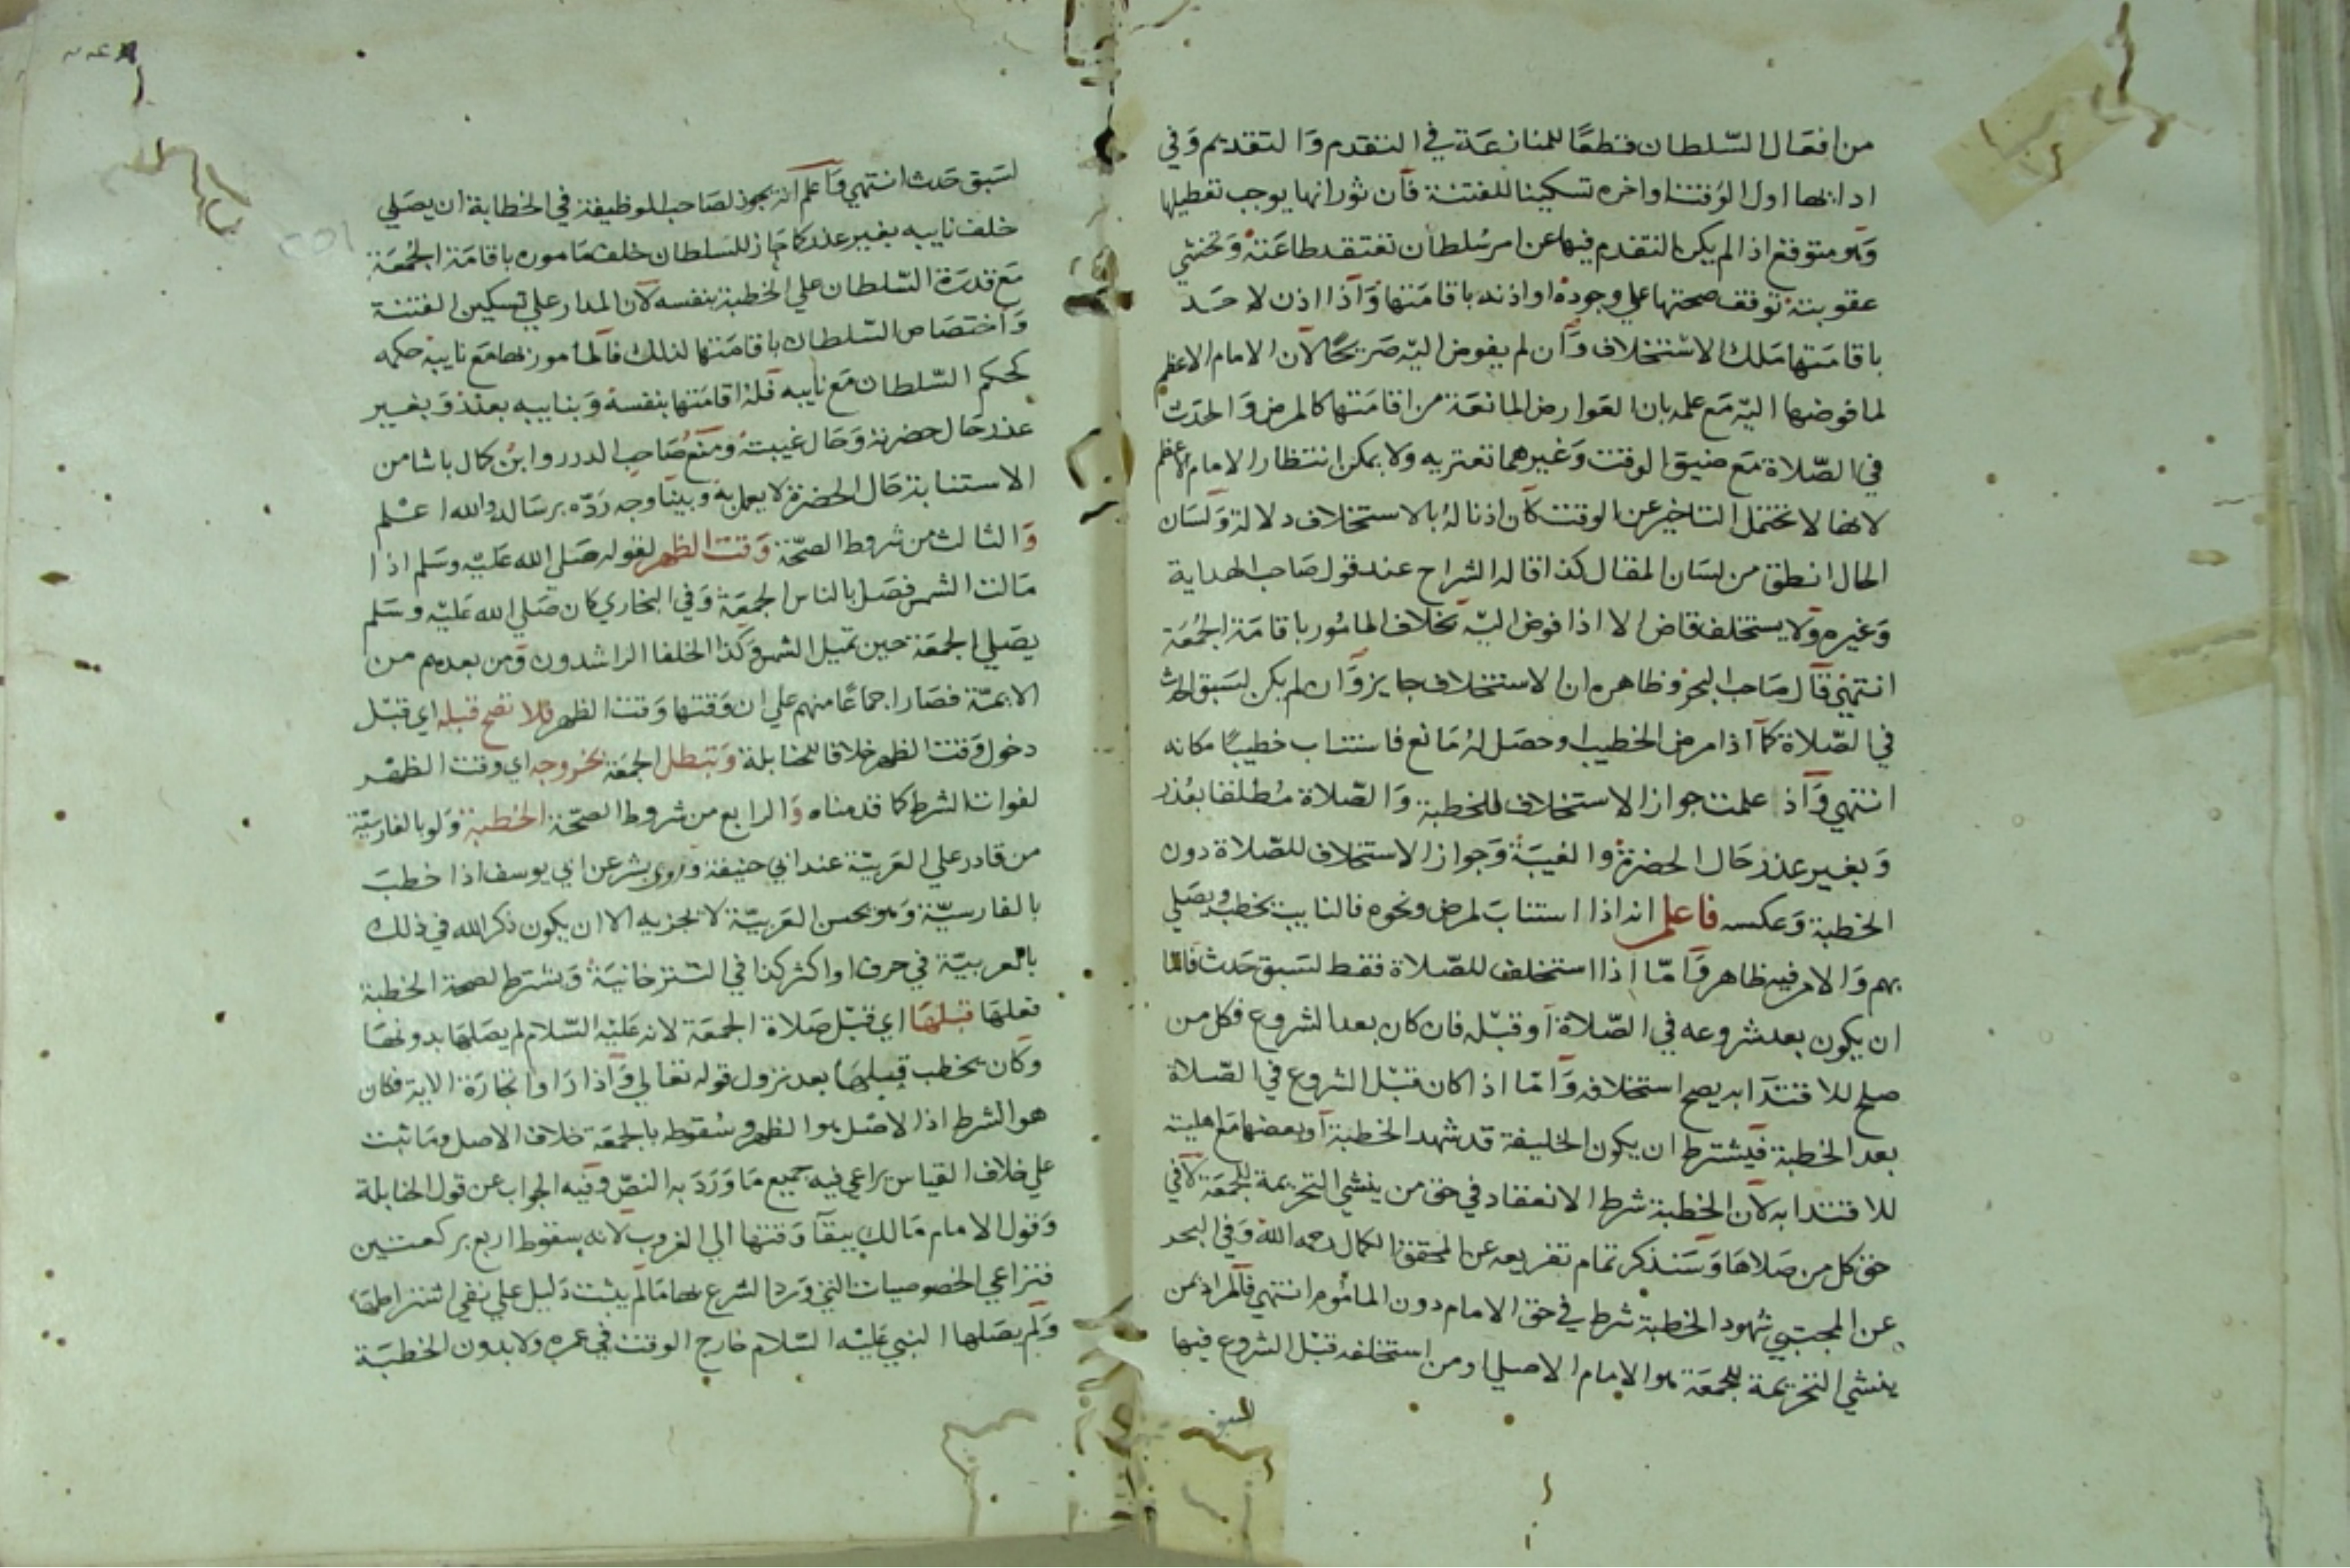 من افعال السلطان قطعًا للمنازعة في التقدم والتقديم وفي
ادائها اول الوقت او اخره تسكينا للفتنة فان ثورانها يوجب تعطيلها
وهو متوقع اذا لم يكن التقدم فيها عن امر سلطان تعتقد طاعته وتخشي
عقوبته توقف صحتها علي وجوده او اذنه باقامتها واذا اذن لاحد
باقامتها ملك الاستخلاف وان لم يفوض اليه صريحًا لان الامام الاعظم
لما فوضها اليه مع علمه بان العوارض المانعة من اقامتها كالمرض والحدث
في الصلاة مع ضيق الوقت وغيرهما تعتريه ولا يمكن انتظار الامام الاعظم
لانها لا تحتمل التاخير عن الوقت كان اذنا له بالاستخلاف دلالة ولسان
الحال انطق من لسان المقال كذا قاله الشراح عند قول صاحب الهداية
وغيره ولا يستخلف قاض الا اذا فوض اليه بخلاف المامور باقامة الجمعة
انتهي قال صاحب البحر وظاهره ان الاستخلاف جايز وان لم يكن لسبق الحدث
في الصلاة كما اذا مرض الخطيب او حصل له مانع فاستناب خطيبًا مكانه
انتهي واذ علمت جواز الاستخلاف للخطبة والصلاة مطلقا بعذر
وبغير عذر حال الحضرة والغيبة وجواز الاستخلاف للصلاة دون
الخطبة وعكسه فاعلم انه اذا استناب لمرض ونحوه فالنايب يخطب ويصلي
بهم والامر فيه ظاهر واما اذا استخلف للصلاة فقط لسبق حدث فاما
ان يكون بعد شروعه في الصلاة او قبله فان كان بعد الشروع فكل من
صلح للاقتدا به يصح استخلافه واما اذا كان قبل الشروع في الصلاة
بعد الخطبة فيشترط ان يكون الخليفة قد شهد الخطبة او بعضها مع اهليته
للاقتدا به لان الخطبة شرط الانعقاد في حق من ينشي التحريمة للجمعة لا في
حق كل من صلاها وسنذكر تمام تفريعه عن المحقق الكمال رحمه الله وفي البحر
عن المجتبي شهود الخطبة شرط في حق الامام دون الماموم انتهي فالمراد بمن
ينشي التحريمة للجمعة هو الامام الاصلي او من استخلفه قبل الشروع فيها
لسبق
لسبق حدث انتهي واعلم انه يجوز لصاحب الوظيفة في الخطابة ان يصلي
خلف نايبه بغير عذر كما جاز للسلطان خلف ماموره باقامة الجمعة
مع قدرة السلطان علي الخطبة بنفسه لان المدار علي تسكين الفتنة
واختصاص السلطان باقامتها لذلك فالمامور بها مع نايبه حكمه
كحكم السلطان مع نايبه فله اقامتها بنفسه وبنايبه بعذر وبغير
عذر حال حضرته وحال غيبته ومنع صاحب الدرر وابن كمال باشا من
الاستنابة حال الحضرة لا يعمل به وبينا وجه رده برسالة والله اعلم
والثالث من شروط الصحة وقت الظهر لقوله صلي الله عليه وسلم اذا
مالت الشمس فصل بالناس الجمعة وفي البخاري كان صلي الله عليه وسلم
يصلي الجمعة حين تميل الشمس وكذا الخلفا الراشدون ومن بعدهم من
الايمة فصار اجماعًا منهم علي ان وقتها وقت الظهر فلا تصح قبله اي قبل
دخول وقت الظهر خلافا للحنابلة وتبطل الجمعة بخروجه اي وقت الظهر
لفوات الشرط كما قدمناه والرابع من شروط الصحة الخطبة ولو بالفارسية
من قادر علي العربية عند ابي حنيفة وروي بشر عن ابي يوسف اذا خطب
بالفارسية وهو يحسن العربية لا تجزيه الا ان يكون ذكر الله في ذلك
بالعربية في حرف او اكثر كذا في التتر خانية ويشترط لصحة الخطبة
فعلها قبلها اي قبل صلاة الجمعة لانه عليه السلام لم يصلها بدونها
وكان يخطب قبلها بعد نزول قوله تعالي واذا راوا تجارة الاية فكان
هو الشرط اذ الاصل هو الظهر وسقوطه بالجمعة خلاف الاصل وما ثبت
علي خلاف القياس يراعي فيه جميع ما ورد به النص وفيه الجواب عن قول الحنابلة
وقول الامام مالك ببقآ وقتها الي الغروب لانه بسقوط اربع بركعتين
فتراعي الخصوصيات التي ورد الشرع بها ما لم يثبت دليل علي نفي اشتراطها
ولم يصلها النبي عليه السلام خارج الوقت في عمره ولا بدون الخطبة